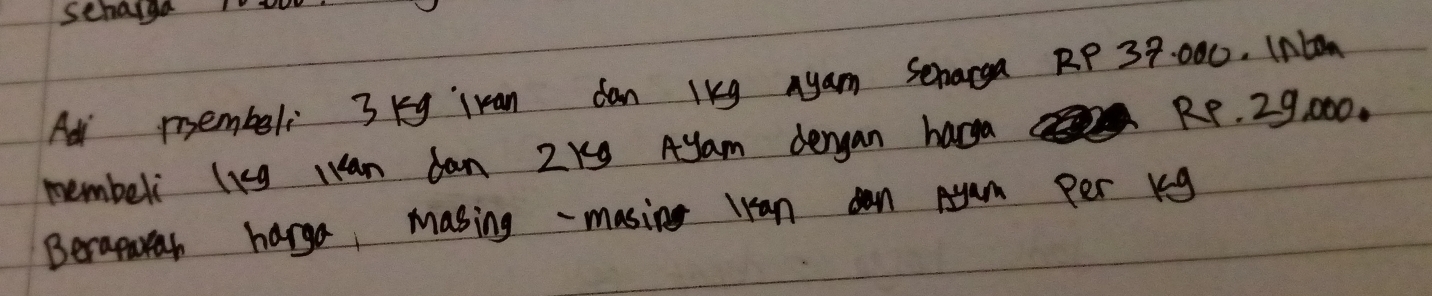 seharga
Adi membeli 3 kg ikan dan 1kg Ayam seharga RP 37.000. Intan
membeli 1kg ikan dan 2 kg Ayam dengan harga RP. 29.000.
Berapakah harga, masing - masing Ikan dan Ayam Per kg